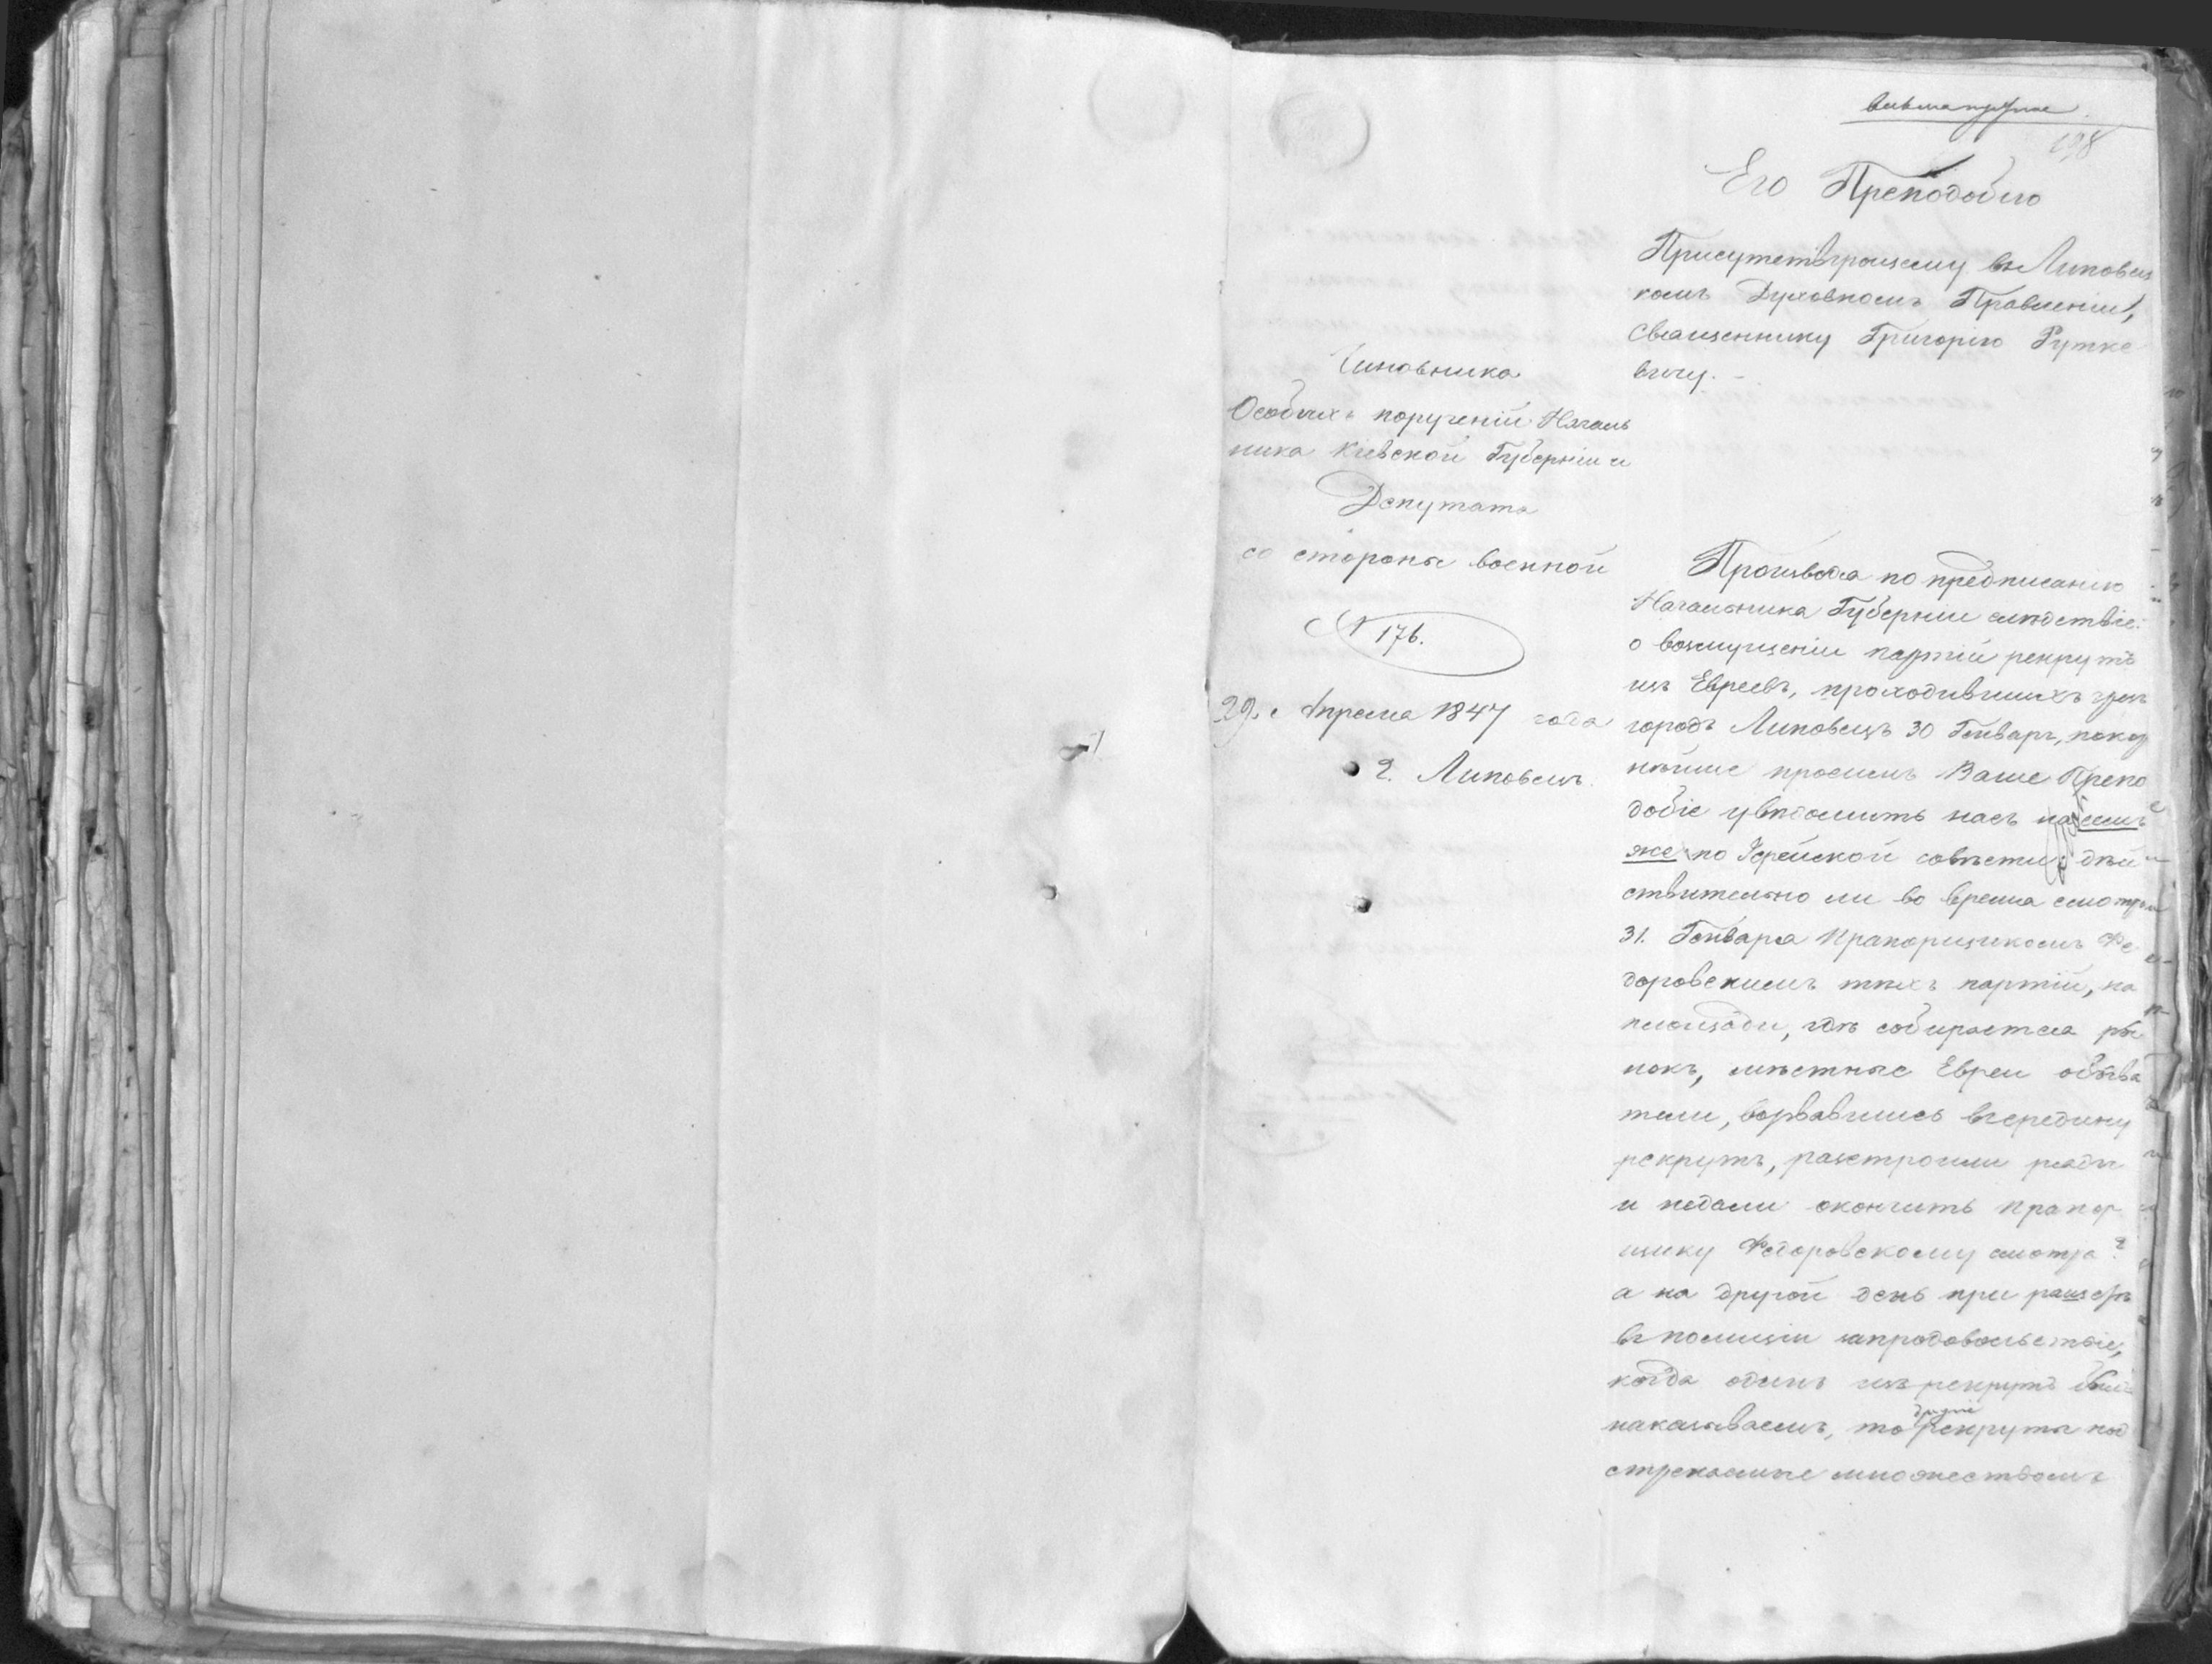 198
Его Преподобію
Присутствующему въ Липовец
комъ Духовномъ Правленіи,
Священнику Григорію Рутке
вичу. –
Чиновника
Особыхъ порученій Началь
ника Кіевской Губерніи и
Депутата
со стороны военной
N 176.
29. Апреля 1847 года
г. Липовецъ.
Производя по предписанію
Начальника Губерніи слѣдствіе:
о возмущеніи партій рекрутъ
изъ Евреевъ, проходившихъ чрезъ
городъ Липовецъ 30 Генваря, покор
нѣйше просимъ Ваше Препо
добіе увѣдомить насъ на семъ
же по Іерейской совѣсти: дѣй
ствительно ли во время смотра
31. Генваря Прапорщикомъ Фе
доровскимъ тѣхъ партій, на
площади, гдѣ собирается ры
нокъ, мѣстные Евреи обыва
тели, ворвавшись въ средину
рекрутъ, разстроили ряды
и недали окончить Прапор
щику Федоровскому смотра?
а на другой день при
въ полиціи
когда одинъ изъ рекрутъ былъ
наказываемъ, то другіе рекруты под
стрекаемые множествомъ